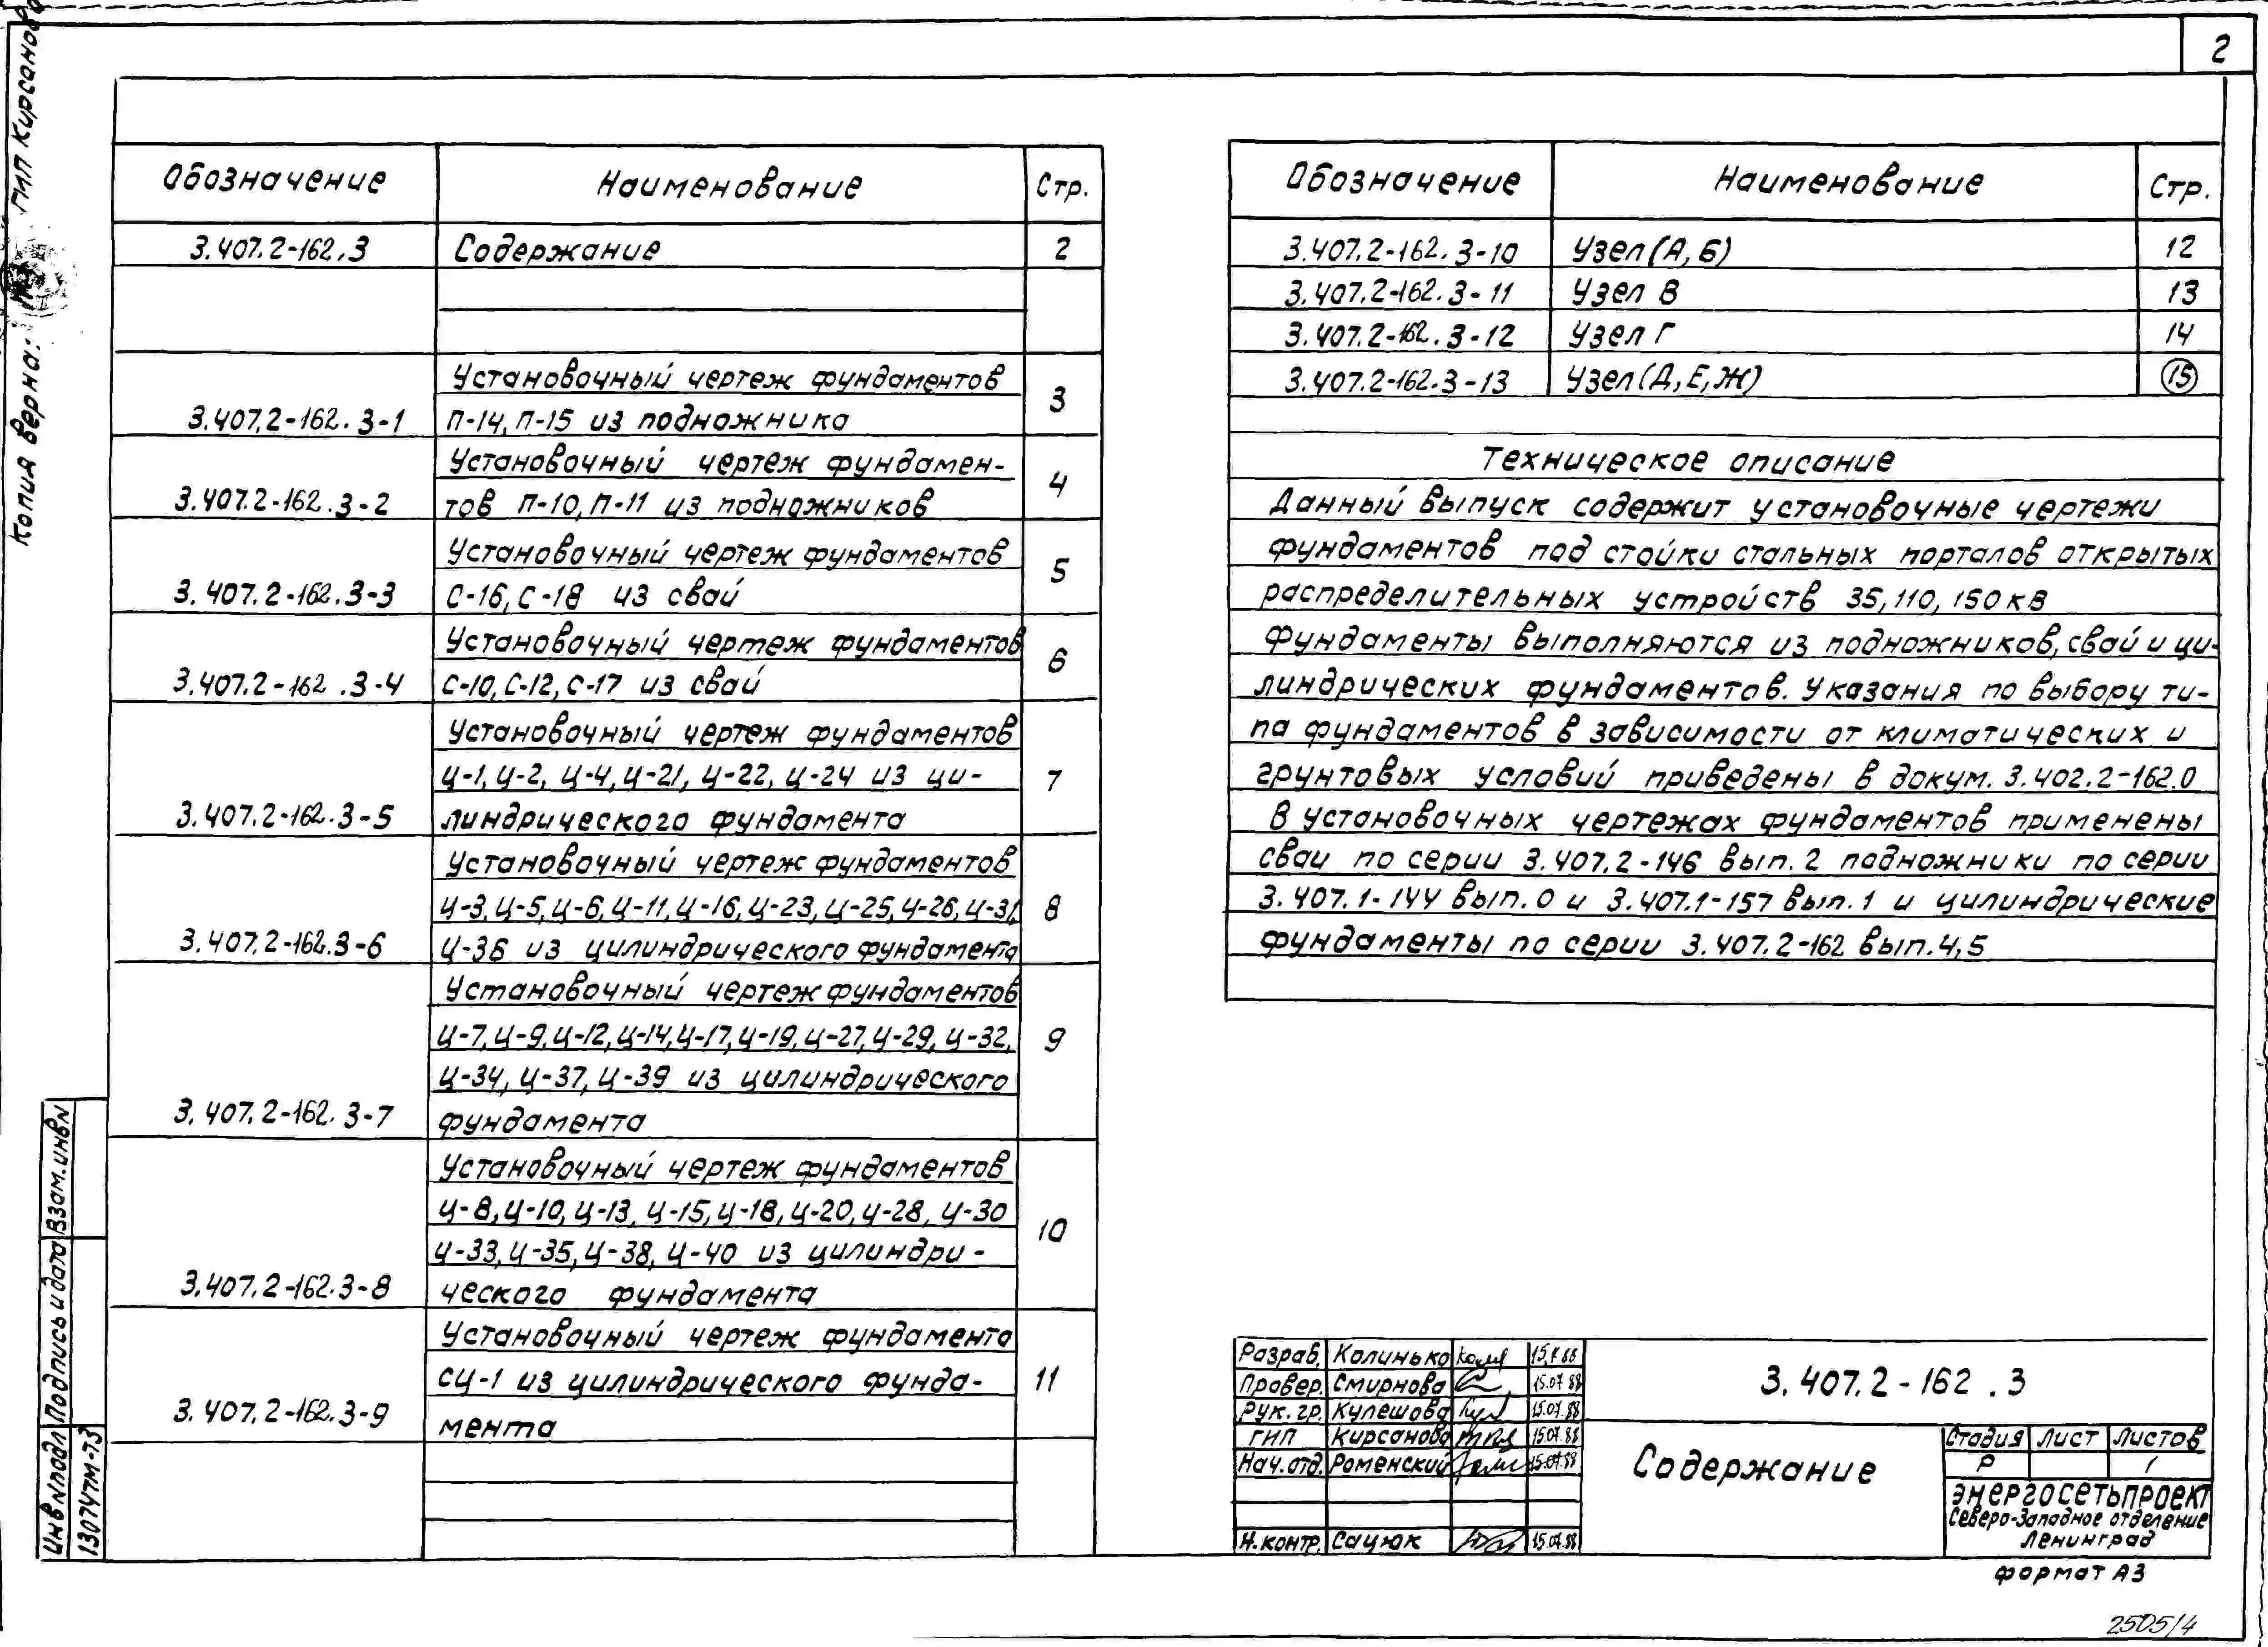 2
Копия верна: ГИП Кирсанова
Обозначение Наименование Стр.
3.407.2-162.3 Содержание 2
Установочный чертеж фундаментов
3.407.2-162.3-1 П-14, П-15 из подножника 3
Установочный чертеж фундамен-
3.407.2-162.3-2 тов П-10, П-11 из подножников 4
Установочный чертеж фундаментов
3.407.2-162.3-3 С-16, С-18 из свай 5
Установочный чертеж фундаментов
3.407.2-162.3-4 С-10, С-12, С-17 из свай 6
Установочный чертеж фундаментов
Ц-1, Ц-2, Ц-4, Ц-21, Ц-22, Ц-24 из ци- 7
3.407.2-162.3-5 линдрического фундамента
Установочный чертеж фундаментов
Ц-3, Ц-5, Ц-6, Ц-11, Ц-16, Ц-23, Ц-25, Ц-26, Ц-31, 8
3.407.2-162.3-6 Ц-36 из цилиндрического фундамента
Установочный чертеж фундаментов
Ц-7, Ц-9, Ц-12, Ц-14, Ц-17, Ц-19, Ц-27, Ц-29, Ц-32, 9
Ц-34, Ц-37, Ц-39 из цилиндрического
3.407.2-162.3-7 фундамента
Установочный чертеж фундаментов
Ц-8, Ц-10, Ц-13, Ц-15, Ц-18, Ц-20, Ц-28, Ц-30 10
Ц-33, Ц-35, Ц-38, Ц-40 из цилиндри-
3.407.2-162.3-8 ческого фундамента
Установочный чертеж фундамента
СЦ-1 из цилиндрического фунда- 11
3.407.2-162.3-9 мента
Обозначение Наименование Стр.
3.407.2-162.3-10 Узел (А, Б) 12
3.407.2-162.3-11 Узел В 13
3.407.2-162.3-12 Узел Г 14
3.407.2-162.3-13 Узел (Д, Е, Ж) 15
Техническое описание
Данный выпуск содержит установочные чертежи
фундаментов под стойки стальных порталов открытых
распределительных устройств 35, 110, 150 кВ
Фундаменты выполняются из подножников, свай и ци-
линдрических фундаментов. Указания по выбору ти-
па фундаментов в зависимости от климатических и
грунтовых условий приведены в докум. 3.402.2-162.0
В установочных чертежах фундаментов применены
сваи по серии 3.407.2-146 вып. 2 подножники по серии
3.407.1-144 вып. 0 и 3.407.1-157 вып. 1 и цилиндрические
фундаменты по серии 3.407.2-162 вып. 4, 5
Разраб. Колинько 15.7.88
Провер. Смирнова 15.07.88
Рук. гр. Кулешова 15.07.88
ГИП Кирсанова 15.07.88
Нач. отд. Роменский 15.07.88
Н. контр. Сацюк 15.07.88
3.407.2-162.3
Содержание
Стадия Лист Листов
Р 1
ЭНЕРГОСЕТЬПРОЕКТ
Северо-Западное отделение
Ленинград
Формат А3
2505/4
Взам. инв N
Подпись и дата
Инв N подл
13074тм-т3